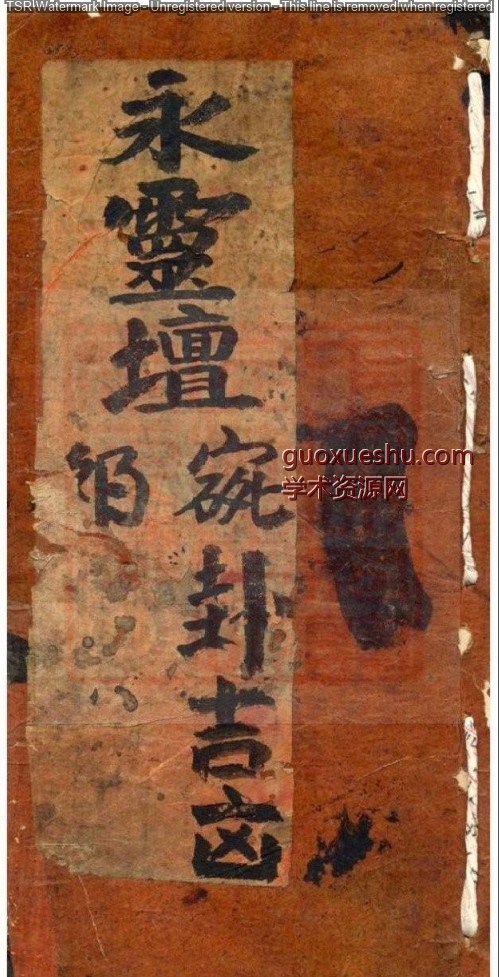 TSR Watermark Image - Unregistered version - This line is removed when registered
永靈壇
卦吉㐫
guoxueshu.com
学术资源网